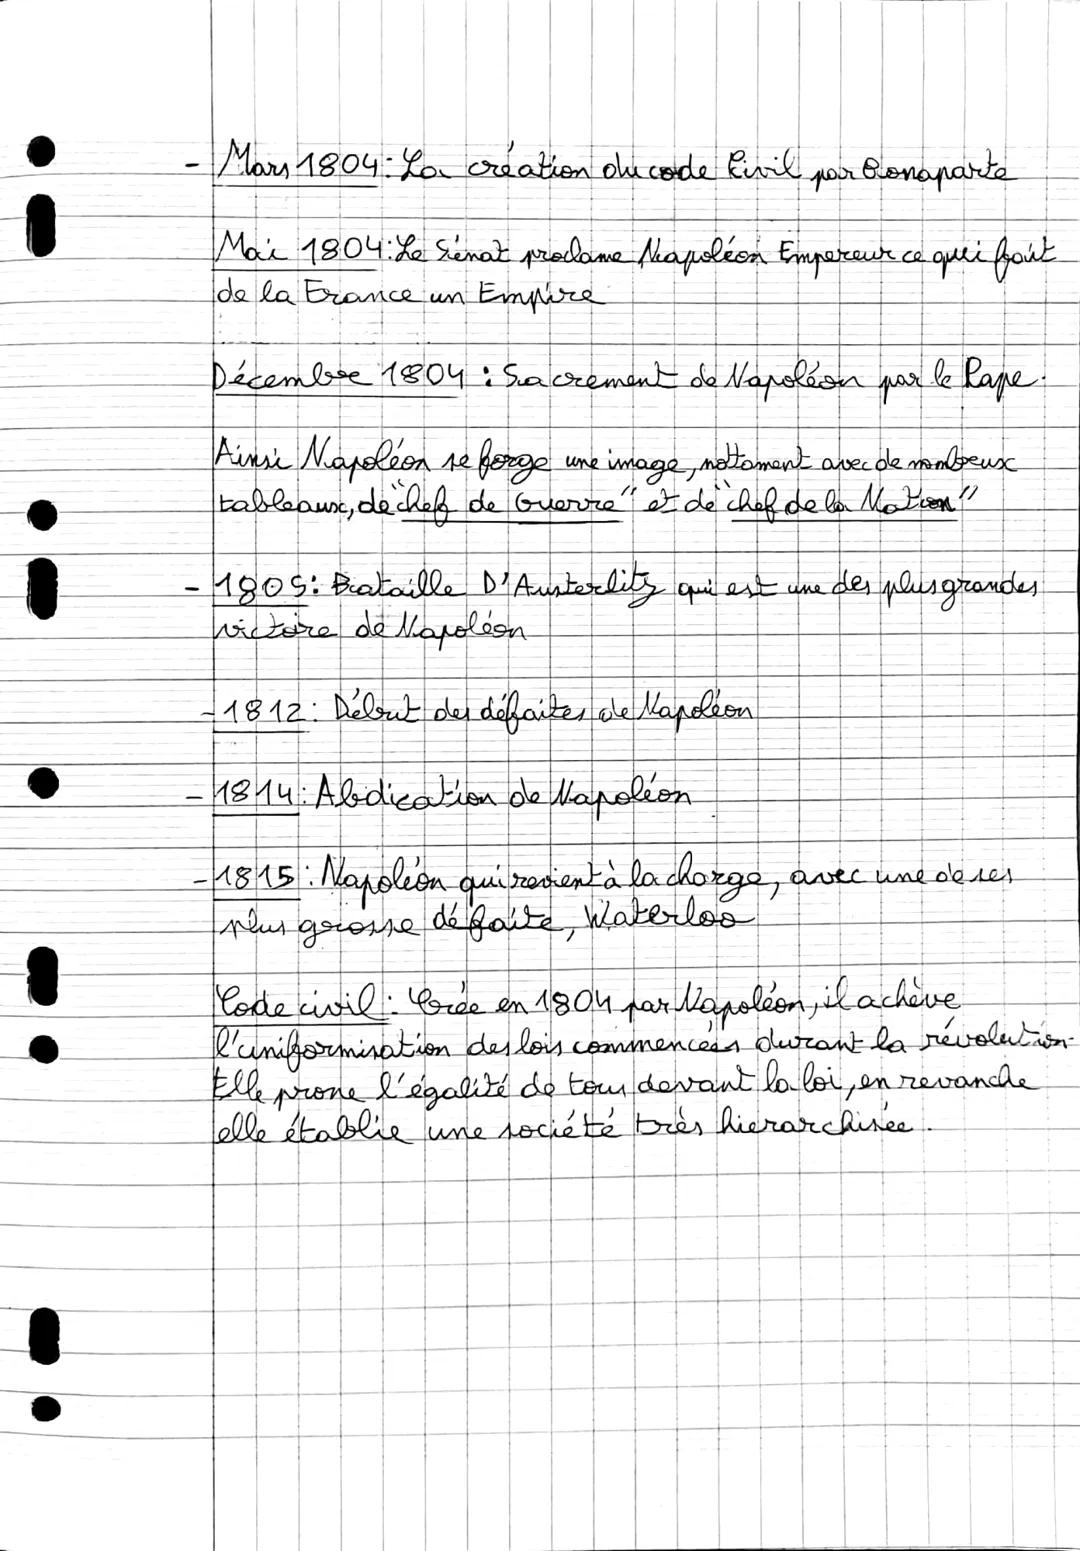 - Mars 1804: La création du code Civil par Bonaparte
Mai 1804: Le Sénat proclame Napoléon Empereur ce qui fait
de la France un Empire
Décembre 1804 : Sacrement de Napoléon par le Pape.
Ainsi Napoléon se forge une image, nottament avec de nombreux
tableaux, de "chef de Guerre" et de "chef de la Nation"
- 1805: Bataille D'Austerlitz qui est une des plus grandes
victoire de Napoléon
- 1812: Début des défaites de Napoléon
- 1814: Abdication de Napoléon
- 1815: Napoléon qui revient à la charge, avec une de ses
plus grosse défaite, Waterloo
Code civil: Crée en 1804 par Napoléon, il achève
l'uniformisation des lois commencées durant la révolution.
Elle prone l'égalité de tous devant la loi, en revanche
elle établie une société très hierarchisée.